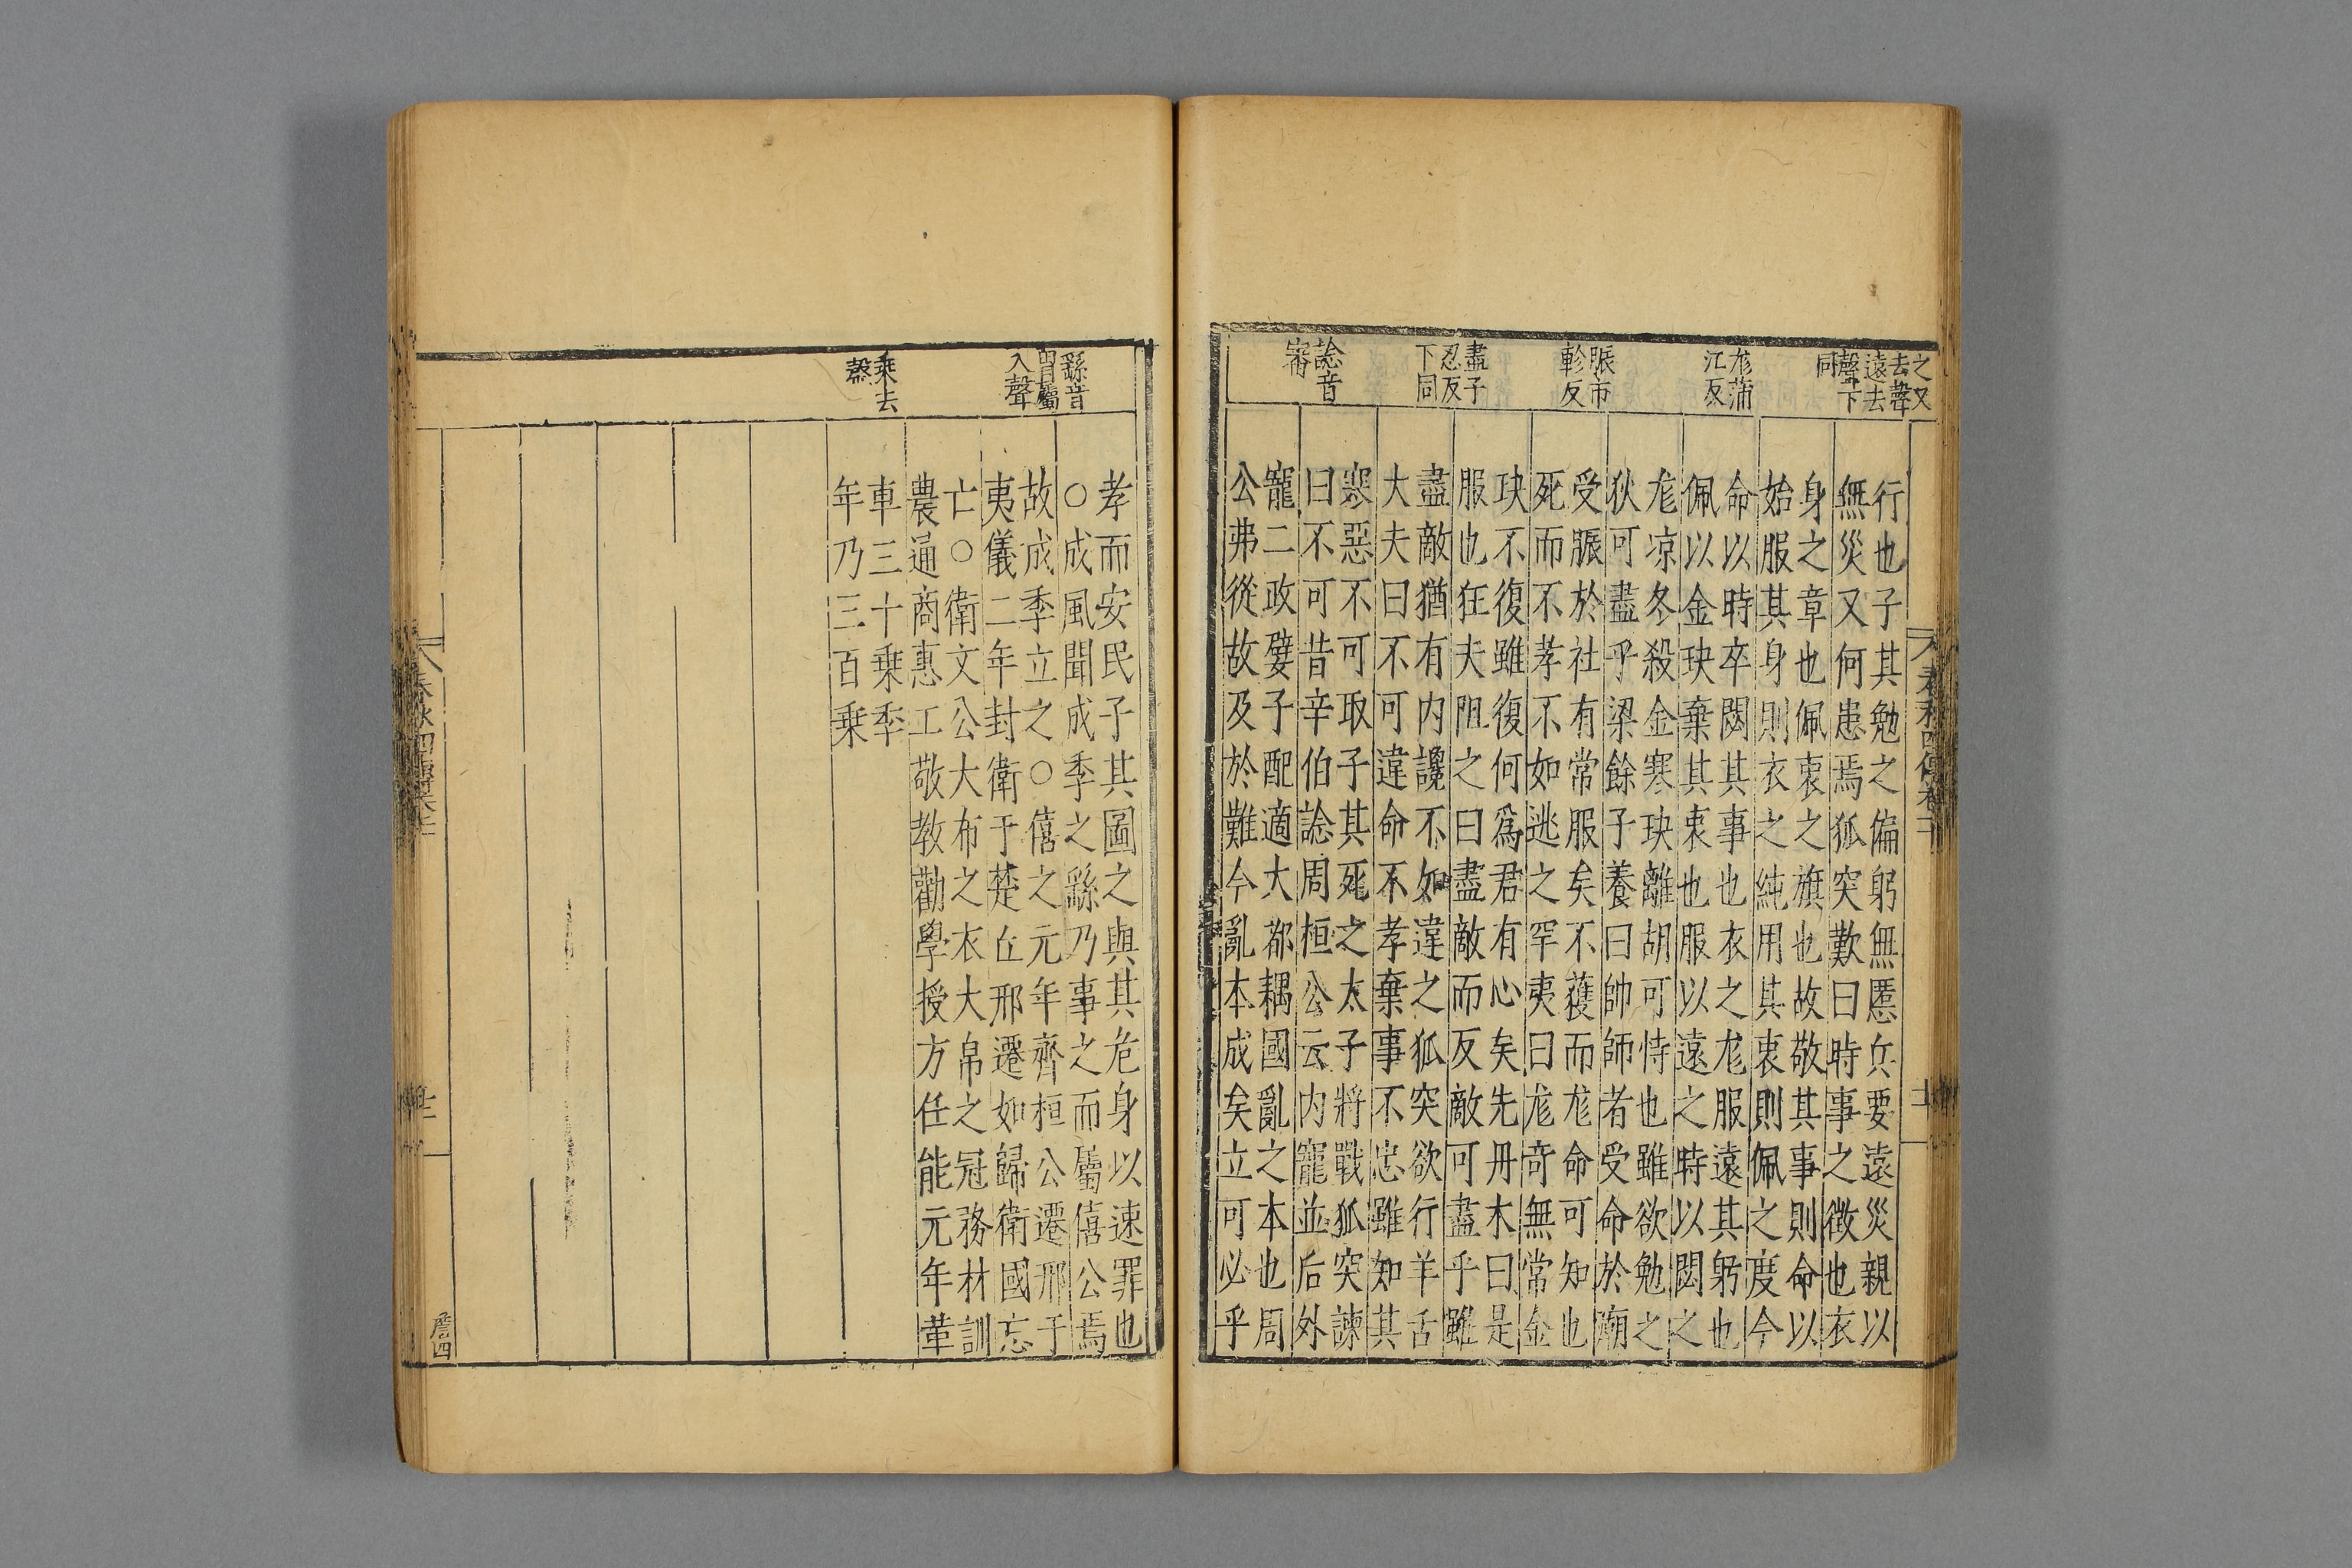 之又
去聲
遠去
聲下
同
尨蒲
江反
脤市
軫反
盡子
忍反
下同
諗音
審
行也子其勉之偏躬無慝兵要遠災親以
無災又何患焉狐突歎曰時事之徵也衣
身之章也佩衷之旗也故敬其事則命以
始服其身則衣之純用其衷則佩之度今
命以時卒閟其事也衣之尨服遠其躬也
佩以金玦棄其衷也服以遠之時以閟之
尨凉冬殺金寒玦離胡可恃也雖欲勉之
狄可盡乎梁餘子養曰帥師者受命於廟
受脤於社有常服矣不獲而尨命可知也
死而不孝不如逃之罕夷曰尨奇無常金
玦不復雖復何爲君有心矣先丹木曰是
服也狂夫阻之曰盡敵而反敵可盡乎雖
盡敵猶有内讒不如違之狐突欲行羊舌
大夫曰不可違命不孝棄事不忠雖知其
寒惡不可取子其死之太子將戰狐突諫
曰不可昔辛伯諗周桓公云内寵並后外
寵二政嬖子配適大都耦國亂之本也周
公弗從故及於難今亂本成矣立可必乎
繇音
胄屬
入聲
乗去
聲
孝而安民子其圖之與其危身以速罪也
○成風聞成季之繇乃事之而屬僖公焉
故成季立之○僖之元年齊桓公遷邢于
夷儀二年封衛于楚丘邢遷如歸衛國忘
亡○衛文公大布之衣大帛之冠務材訓
農通商惠工敬教勸學授方任能元年革
車三十乗季
年乃三百乗
春秋四傳卷十
詹四